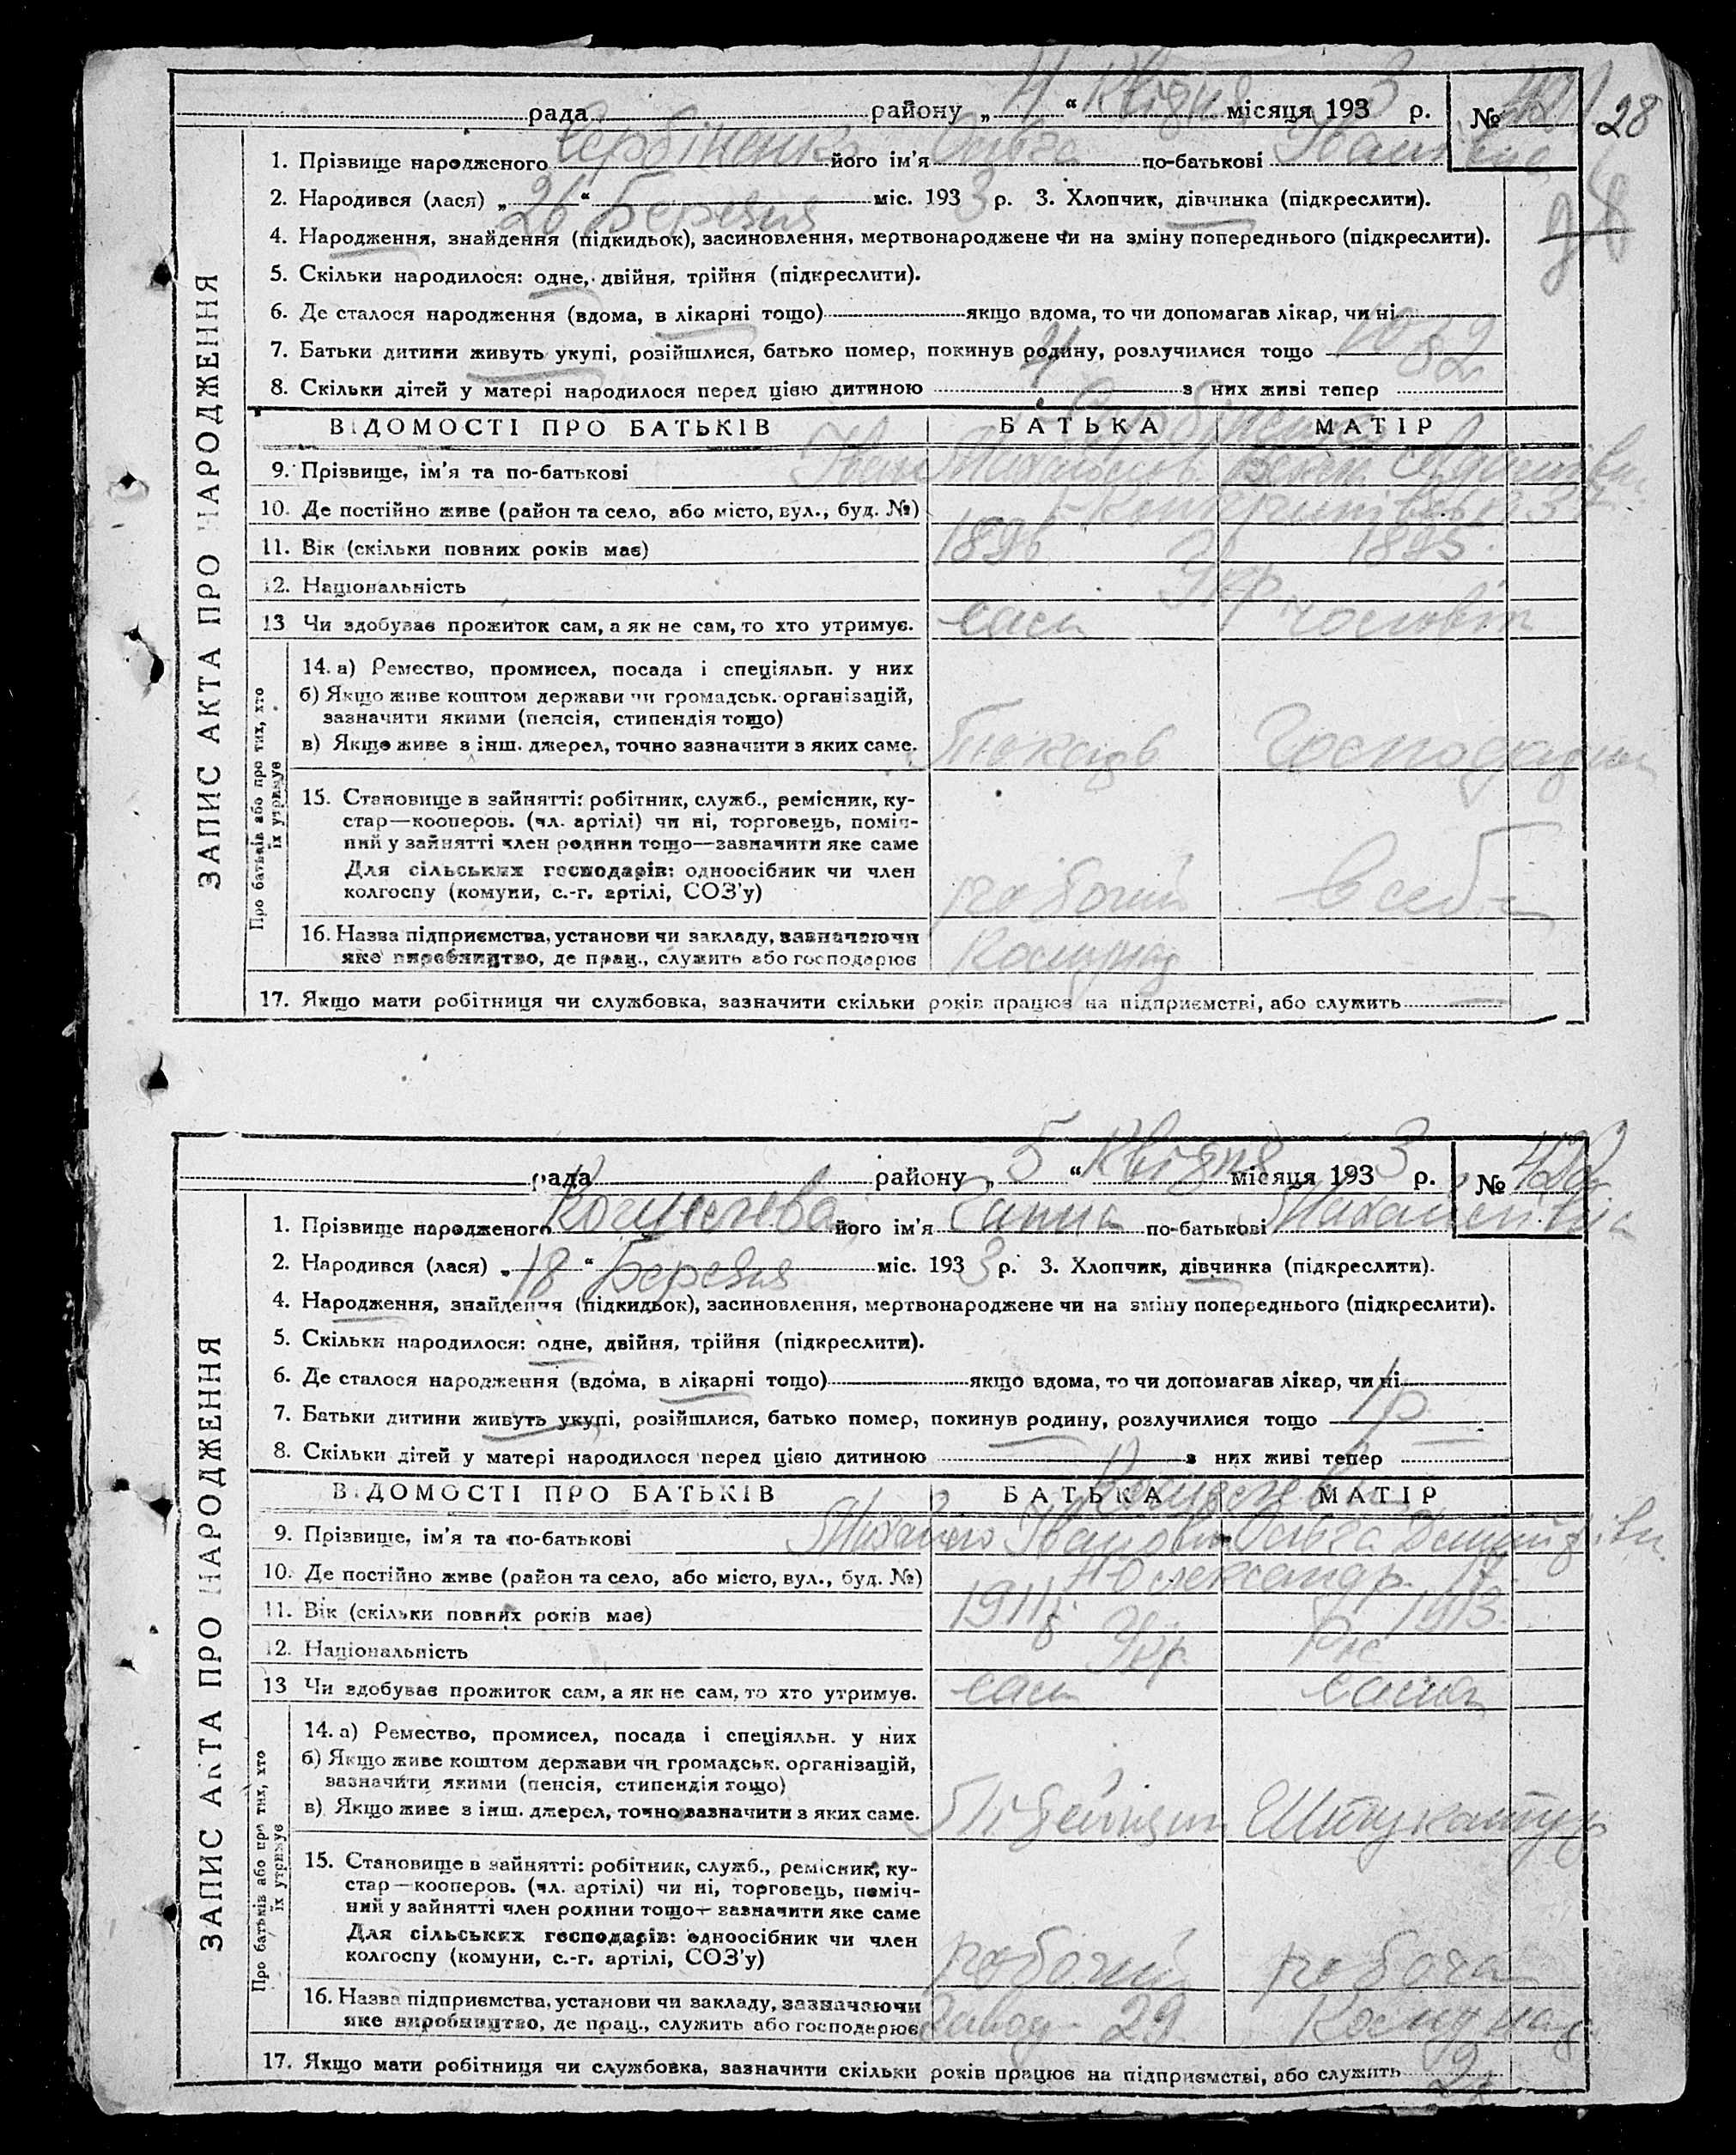 рада района „ 4 “ Квітня місяця 193 3 р. № 421
28
1. Прізвище народженого його ім'я Ольга по-батькові Іванівна
2. Народився (лася) „ 26 “ Березня міс. 193 3 р. 3. Хлопчик, дівчинка (підкреслити).
4. Народження, знайдення (підкидьок), засиновлення, мертвонароджене чи на зміну попереднього (підкреслити).
5. Скільки народилося: одне, двійня, трійня (підкреслити).
6. Де сталося народження (вдома, в лікарні тощо) якщо вдома, то чи допомагав лікар, чи ні
7. Батьки дитини живуть укупі, розійшлися, батько помер, покинув родину, розлучилися тощо
8. Скільки дітей у матері народилося перед цією дитиною 4 з них живі тепер 2
ЗАПИС АКТА ПРО НАРОДЖЕННЯ
ВІДОМОСТІ ПРО БАТЬКІВ БАТЬКА МАТІР
9. Прізвище, ім'я та по-батькові Іван
10. Де постійно живе (район та село, або місто, вул., буд. №)
11. Вік (скільки повних років має) 1896 1895
12. Національність Укр
13 Чи здобуває прожиток сам, а як не сам, то хто утримує. сам чоловік
Про батьків або про тих, хто їх утримує
14. а) Ремество, промисел, посада і спеціяльн. у них
б) Якщо живе коштом держави чи громадськ. організацій,
зазначити якими (пенсія, стипендія тощо)
в) Якщо живе з інш. джерел, точно зазначити з яких саме.
15. Становище в зайнятті: робітник, служб., ремісник, ку-
стар—кооперов. (чл. артілі) чи ні, торговець, поміч-
ний у зайнятті член родини тощо—зазначити яке саме
Для сільських господарів: одноосібник чи член
колгоспу (комуни, с.-г. артілі, СОЗ'у) робочий
16. Назва підприємства, установи чи закладу, зазначаючи
яке виробництво, де прац., служить або господарює Комунад
17. Якщо мати робітниця чи службовка, зазначити скільки років працює на підприємстві, або служить —
рада району „ 5 “ Квітня місяця 193 3 р. № 422
1. Прізвище народженого його ім'я Ганна по-батькові Михайлівна
2. Народився (лася) „ 18 “ Березня міс. 193 3 р. 3. Хлопчик, дівчинка (підкреслити).
4. Народження, знайдення (підкидьок), засиновлення, мертвонароджене чи на зміну попереднього (підкреслити).
5. Скільки народилося: одне, двійня, трійня (підкреслити).
6. Де сталося народження (вдома, в лікарні тощо) якщо вдома, то чи допомагав лікар, чи ні
7. Батьки дитини живуть укупі, розійшлися, батько помер, покинув родину, розлучилися тощо 1р
8. Скільки дітей у матері народилося перед цією дитиною — з них живі тепер —
ЗАПИС АКТА ПРО НАРОДЖЕННЯ
ВІДОМОСТІ ПРО БАТЬКІВ БАТЬКА МАТІР
9. Прізвище, ім'я та по-батькові Михайло Іванович Ольга
10. Де постійно живе (район та село, або місто, вул., буд. №)
11. Вік (скільки повних років має) 1911 1913
12. Національність Укр. Рус
13 Чи здобуває прожиток сам, а як не сам, то хто утримує. сам сама
Про батьків або про тих, хто їх утримує
14. а) Ремество, промисел, посада і спеціяльн. у них
б) Якщо живе коштом держави чи громадськ. організацій,
зазначити якими (пенсія, стипендія тощо)
в) Якщо живе з інш. джерел, точно зазначити з яких саме. Штукатур
15. Становище в зайнятті: робітник, служб., ремісник, ку-
стар—кооперов. (чл. артілі) чи ні, торговець, поміч-
ний у зайнятті член родини тощо— зазначити яке саме
Для сільських господарів: одноосібник чи член
колгоспу (комуни, с.-г. артілі, СОЗ'у) робочий робоча
16. Назва підприємства, установи чи закладу, зазначаючи
яке виробництво, де прац., служить або господарює Завод 29 Комунад
17. Якщо мати робітниця чи службовка, зазначити скільки років працює на підприємстві, або служить